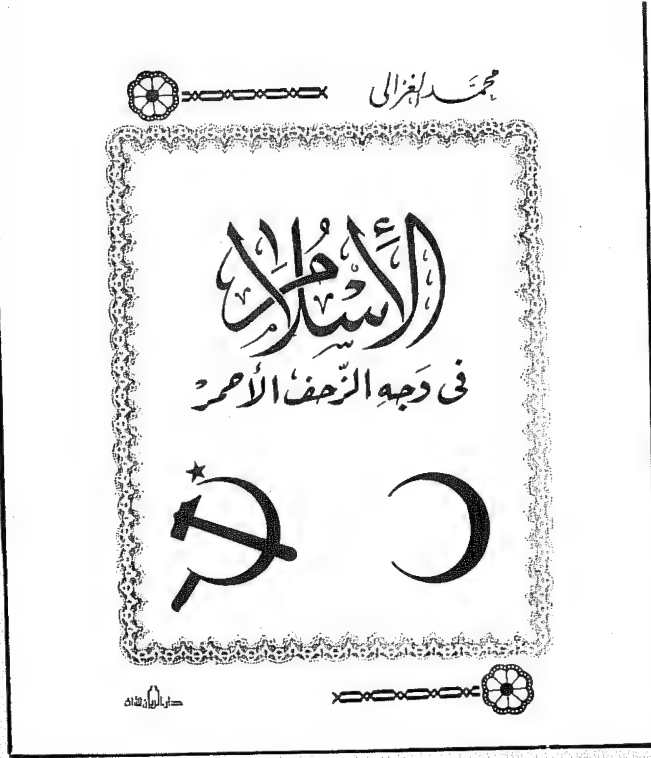 محمد الغزالى
الإسلام
فى وَجهِ الزّحف الأحمرْ
دار الريان للتراث